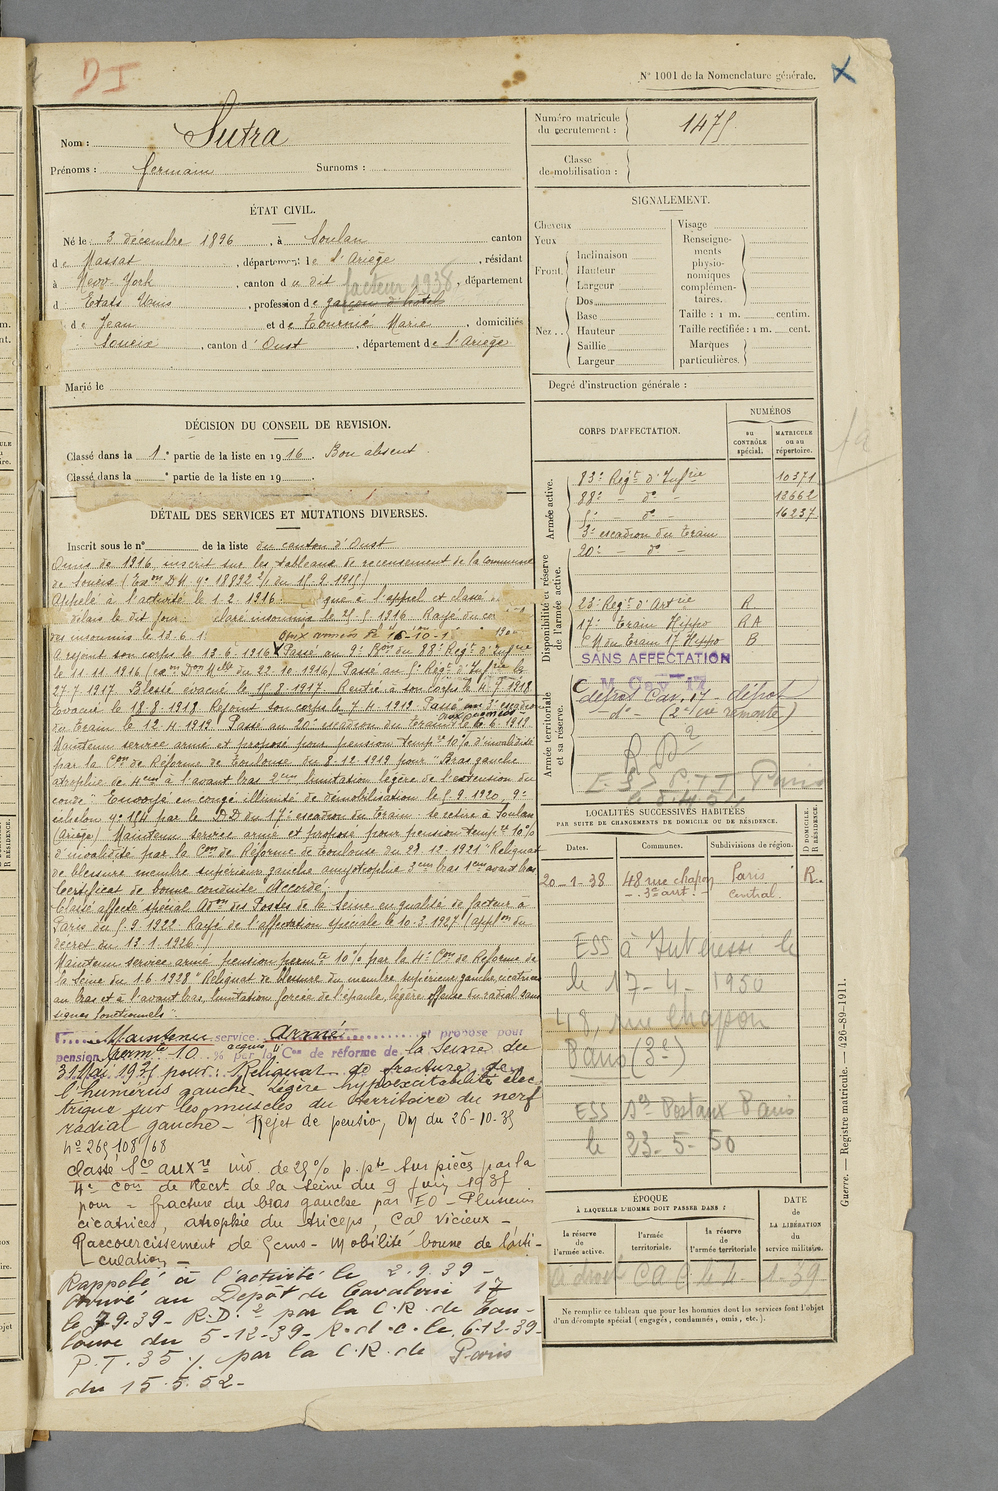 DI
N° 1001 de la Nomenclature générale.
X
Nom : Sutra
Prénoms : Germain Surnoms :
Numéro matricule du recrutement : 1475
Classe de mobilisation :
ÉTAT CIVIL.
Né le 3 décembre 1896, à Soulan canton
de Massat, département de l'Ariège, résidant
à New-York, canton du dit, département
facteur 1938
d Etats Unis, profession de garçon d'hôtel
de Jean et de Tournié Marie, domiciliés
Soueix, canton d'Oust, département de l'Ariège
Marié le
SIGNALEMENT.
Cheveux
Yeux
Front. Inclinaison
Hauteur
Largeur
Nez Dos
Base
Hauteur
Saillie
Largeur
Visage
Renseignements physionomiques complémentaires.
Taille : 1 m. centim.
Taille rectifiée : 1 m. cent.
Marques particulières.
Degré d'instruction générale :
DÉCISION DU CONSEIL DE REVISION.
Classé dans la 1e partie de la liste en 1916. Bon absent
Classé dans la e partie de la liste en 19
DÉTAIL DES SERVICES ET MUTATIONS DIVERSES.
Inscrit sous le n° de la liste du canton d'Oust
Omis de 1916, inscrit sur les tableaux de recensement de la commune
de Soueix
Appelé à l'activité le 1.2.1916. que à l'appel et classé
délais le dit jour. claré insoumis le Rayé du
des insoumis le 13.6.1 aux armées le 16-10-1
A rejoint son corps le 13.6.1916 Passé au 9e Bon du 88e Regt d'Infrie
le 11.11.1916 du 22.10.1916) Passé au Regt d'Infrie le
27.7.1917. Blessé évacué le 1917. Rentré à son corps le 4.7.1918
Evacué le 18.8.1918. Rejoint son corps le 7.4.1919. Passé au 3e escadron
du Train le 12.4.1919. Passé au 20e escadron du Train le 6.1919
Maintenu service armé et proposé pour pension tempre 10% d'invalidité
par la Con de Réforme de Toulouse du 8.12.1919 pour "Bras gauche
atrophie de 4cm à l'avant bras 2cm limitation légère de l'extension du
coude" Envoyé en congé illimité de démobilisation le 5.9.1920, 9e
échelon n° 184 par le DD du 17e escadron du Train. se retire à Soulan
(Ariège) Maintenu service armé et proposé pour pension tempre 10%
d'invalidité par la Con de Réforme de Toulouse du 23.12.1921 "Reliquat
de blessure membre supérieur gauche amyotrophie 3cm bras 1cm avant bras
Certificat de bonne conduite Accordé.
Classé affecté spécial Atn des Postes de la Seine en qualité de facteur à
Paris du 5.9.1922 Rayé de l'affectation spéciale le 10.3.1927 (appon du
décret du 13.1.1926.)
Maintenu service armé pension permte 10% par la 4e Con de Réforme de
la Seine du 1.6.1928 "Reliquat de blessure du membre supérieur gauche, cicatrices
au bras et à l'avant bras, limitation forcée de l'épaule, légère offense du radial sans
signes fonctionnels".
Maintenu service armé et proposé pour
pension permte 10 % par la Con de réforme de la Seine du
31 Mai 1935 pour : Reliquat de fracture de
l'humérus gauche. Légère hypoexcitabilité élec-
trique sur les muscles du territoire du nerf
radial gauche - Rejet de pension, DM du 26-10-35
N° 265,108/68
Classé Sce auxre inv. de 25% p. pte sur pièces par la
4e Con de Récrt de la Seine du 9 Juin 1937
pour = fracture du bras gauche par EO - Plusieurs
cicatrices, atrophie du triceps, Cal vicieux -
Raccourcissement de 5cms - Mobilité bonne de l'arti-
culation -
Rappelé à l'activité le 2.9.39 -
Arrivé au Dépôt de Cavalerie 17
le 7.9.39 - R.D.2 par la C.R. de Tou-
louse du 5-12-39 - R.d.c. le 6.12.39 -
P.T. 35 % par la C.R. de Paris
du 15.5.52 -
CORPS D'AFFECTATION.
NUMÉROS
au CONTRÔLE spécial.
MATRICULE ou au répertoire.
Armée active.
83e Regt d'Infrie 10371
88e - do - 12662
- do - 16237
3e escadron du Train
20e - do -
Disponibilité et réserve de l'armée active.
23e Regt d'Artie R
17e Train Hippo RA
CM du Train 17 Hippo B
SANS AFFECTATION
Armée territoriale et sa réserve.
C M Cav 17
dépôt Cav. 17 - dépôt
do - (2e remonte)
R D 2
E.S.S. P.T.T. Paris
LOCALITÉS SUCCESSIVES HABITÉES
PAR SUITE DE CHANGEMENTS DE DOMICILE OU DE RÉSIDENCE.
Dates. Communes. Subdivisions de région. D DOMICILE. R RÉSIDENCE.
20-1-38 48 rue Chapon Paris R.
- 3e arrt - Central.
ESS à
le 17-4-1950
48, rue Chapon
Paris (3e)
ESS Postaux Paris
le 23-5-50
ÉPOQUE
À LAQUELLE L'HOMME DOIT PASSER DANS :
la réserve de l'armée active.
l'armée territoriale.
la réserve de l'armée territoriale
DATE de LA LIBÉRATION du service militaire.
A droit C A C le 4-1-39
Ne remplir ce tableau que pour les hommes dont les services font l'objet
d'un décompte spécial (engagés, condamnés, omis, etc.).
Guerre. — Registre matricule. — 426-89-1911.